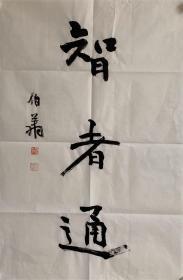 智者通
伯萧